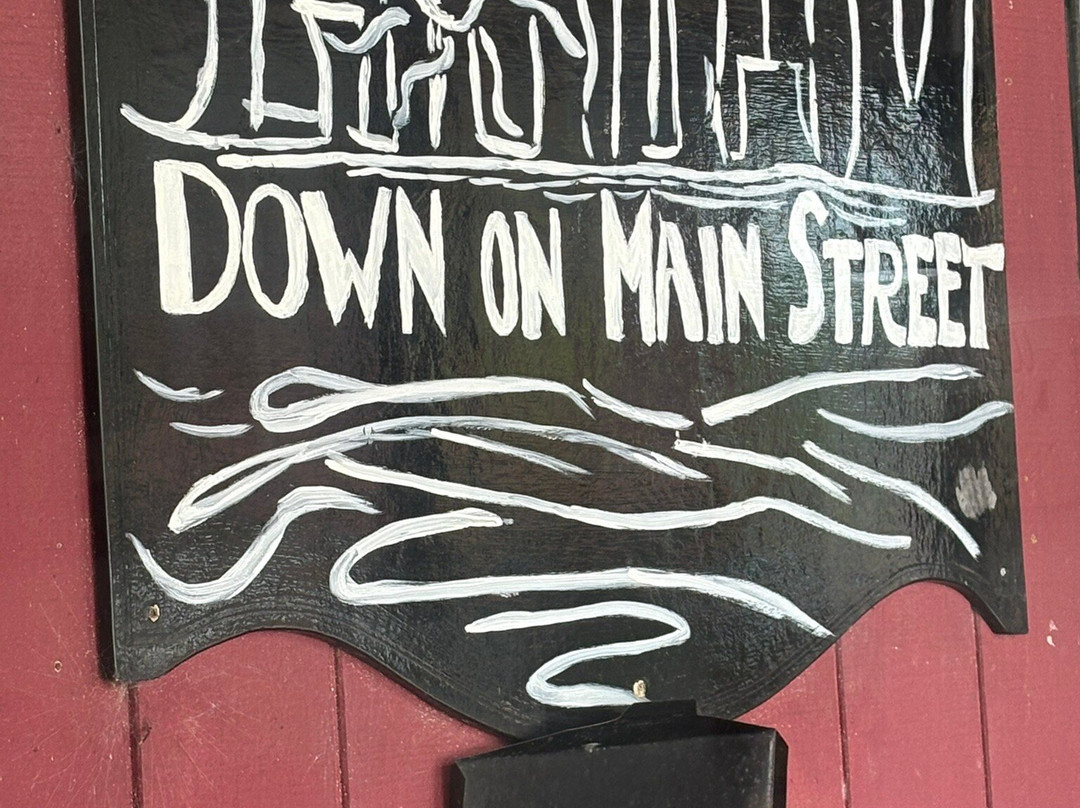 DOWN ON MAIN STREET